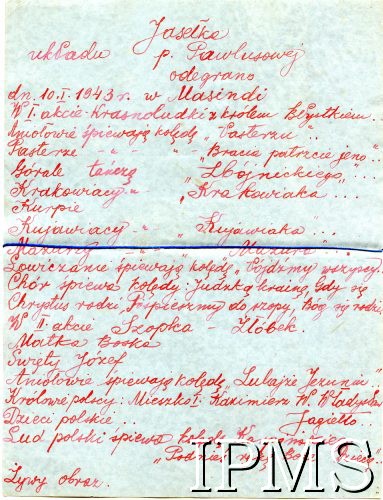 Jasełka
układu p. Pawlusowej
odegrano
dn. 10.I.1943 r. w Masindi
W I akcie: Krasnoludki z królem Błystkiem...
Aniołowie śpiewają kolędę „Pasterze"...
Pasterze -"- -"- „Bracia patrzcie jeno"...
Górale tańczą „Zbójnickiego"...
Krakowiacy -"- „Krakowiaka"...
Kurpie
Kujawiacy -"- „Kujawiaka"...
Mazurzy -"- „Mazura"...
Łowiczanie śpiewają kolędę „Pójdźmy wszyscy"
Chór śpiewa kolędy: Judzką krainę, Gdy się
Chrystus rodzi, Pospieszmy do szopy, Bóg się rodzi,
W II akcie Szopka - Żłóbek.
Matka Boska
Święty Józef
Aniołowie śpiewają kolędę „Lulajże Jezuniu"
Królowie polscy: Mieszko I. Kazimierz W. Władysław
Dzieci polskie... Jagiełło...
Lud polski śpiewa kolędę
„Podnieś rękę Boże Dziecię"
Żywy obraz.
IPMS